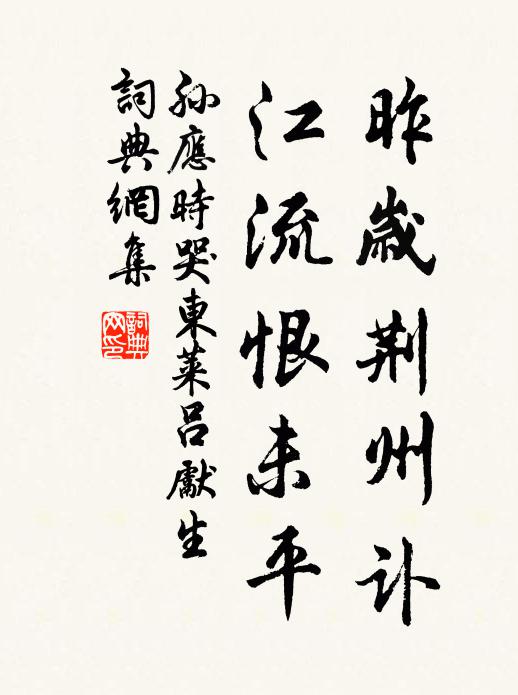 昨歲荆州訃
江流恨未平
孫應時哭東萊呂獻生
詞典網集
詞典
网印